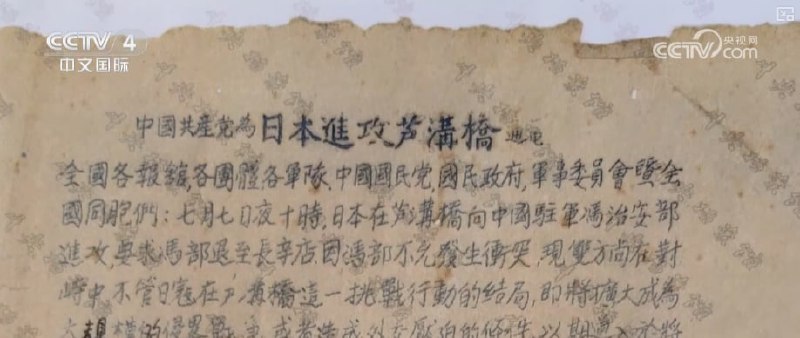 CCTV 4
中文国际
央视网
CCTV.com
中國共産党為日本進攻芦溝橋通電
全國各報舘,各團體各軍隊,中國國民党,國民政府,軍事委員會暨全
國同胞們:七月七日夜十時,日本在芦溝橋向中國駐軍馮治安部
進攻,要求馮部退至長辛店因馮部不允發生衝突,現雙方尚在對
峙中不管日寇在芦溝橋這一挑戰行動的結局,即將擴大成為
大規模的侵畧戰争或者造成外交壓迫的條件以期導入於將